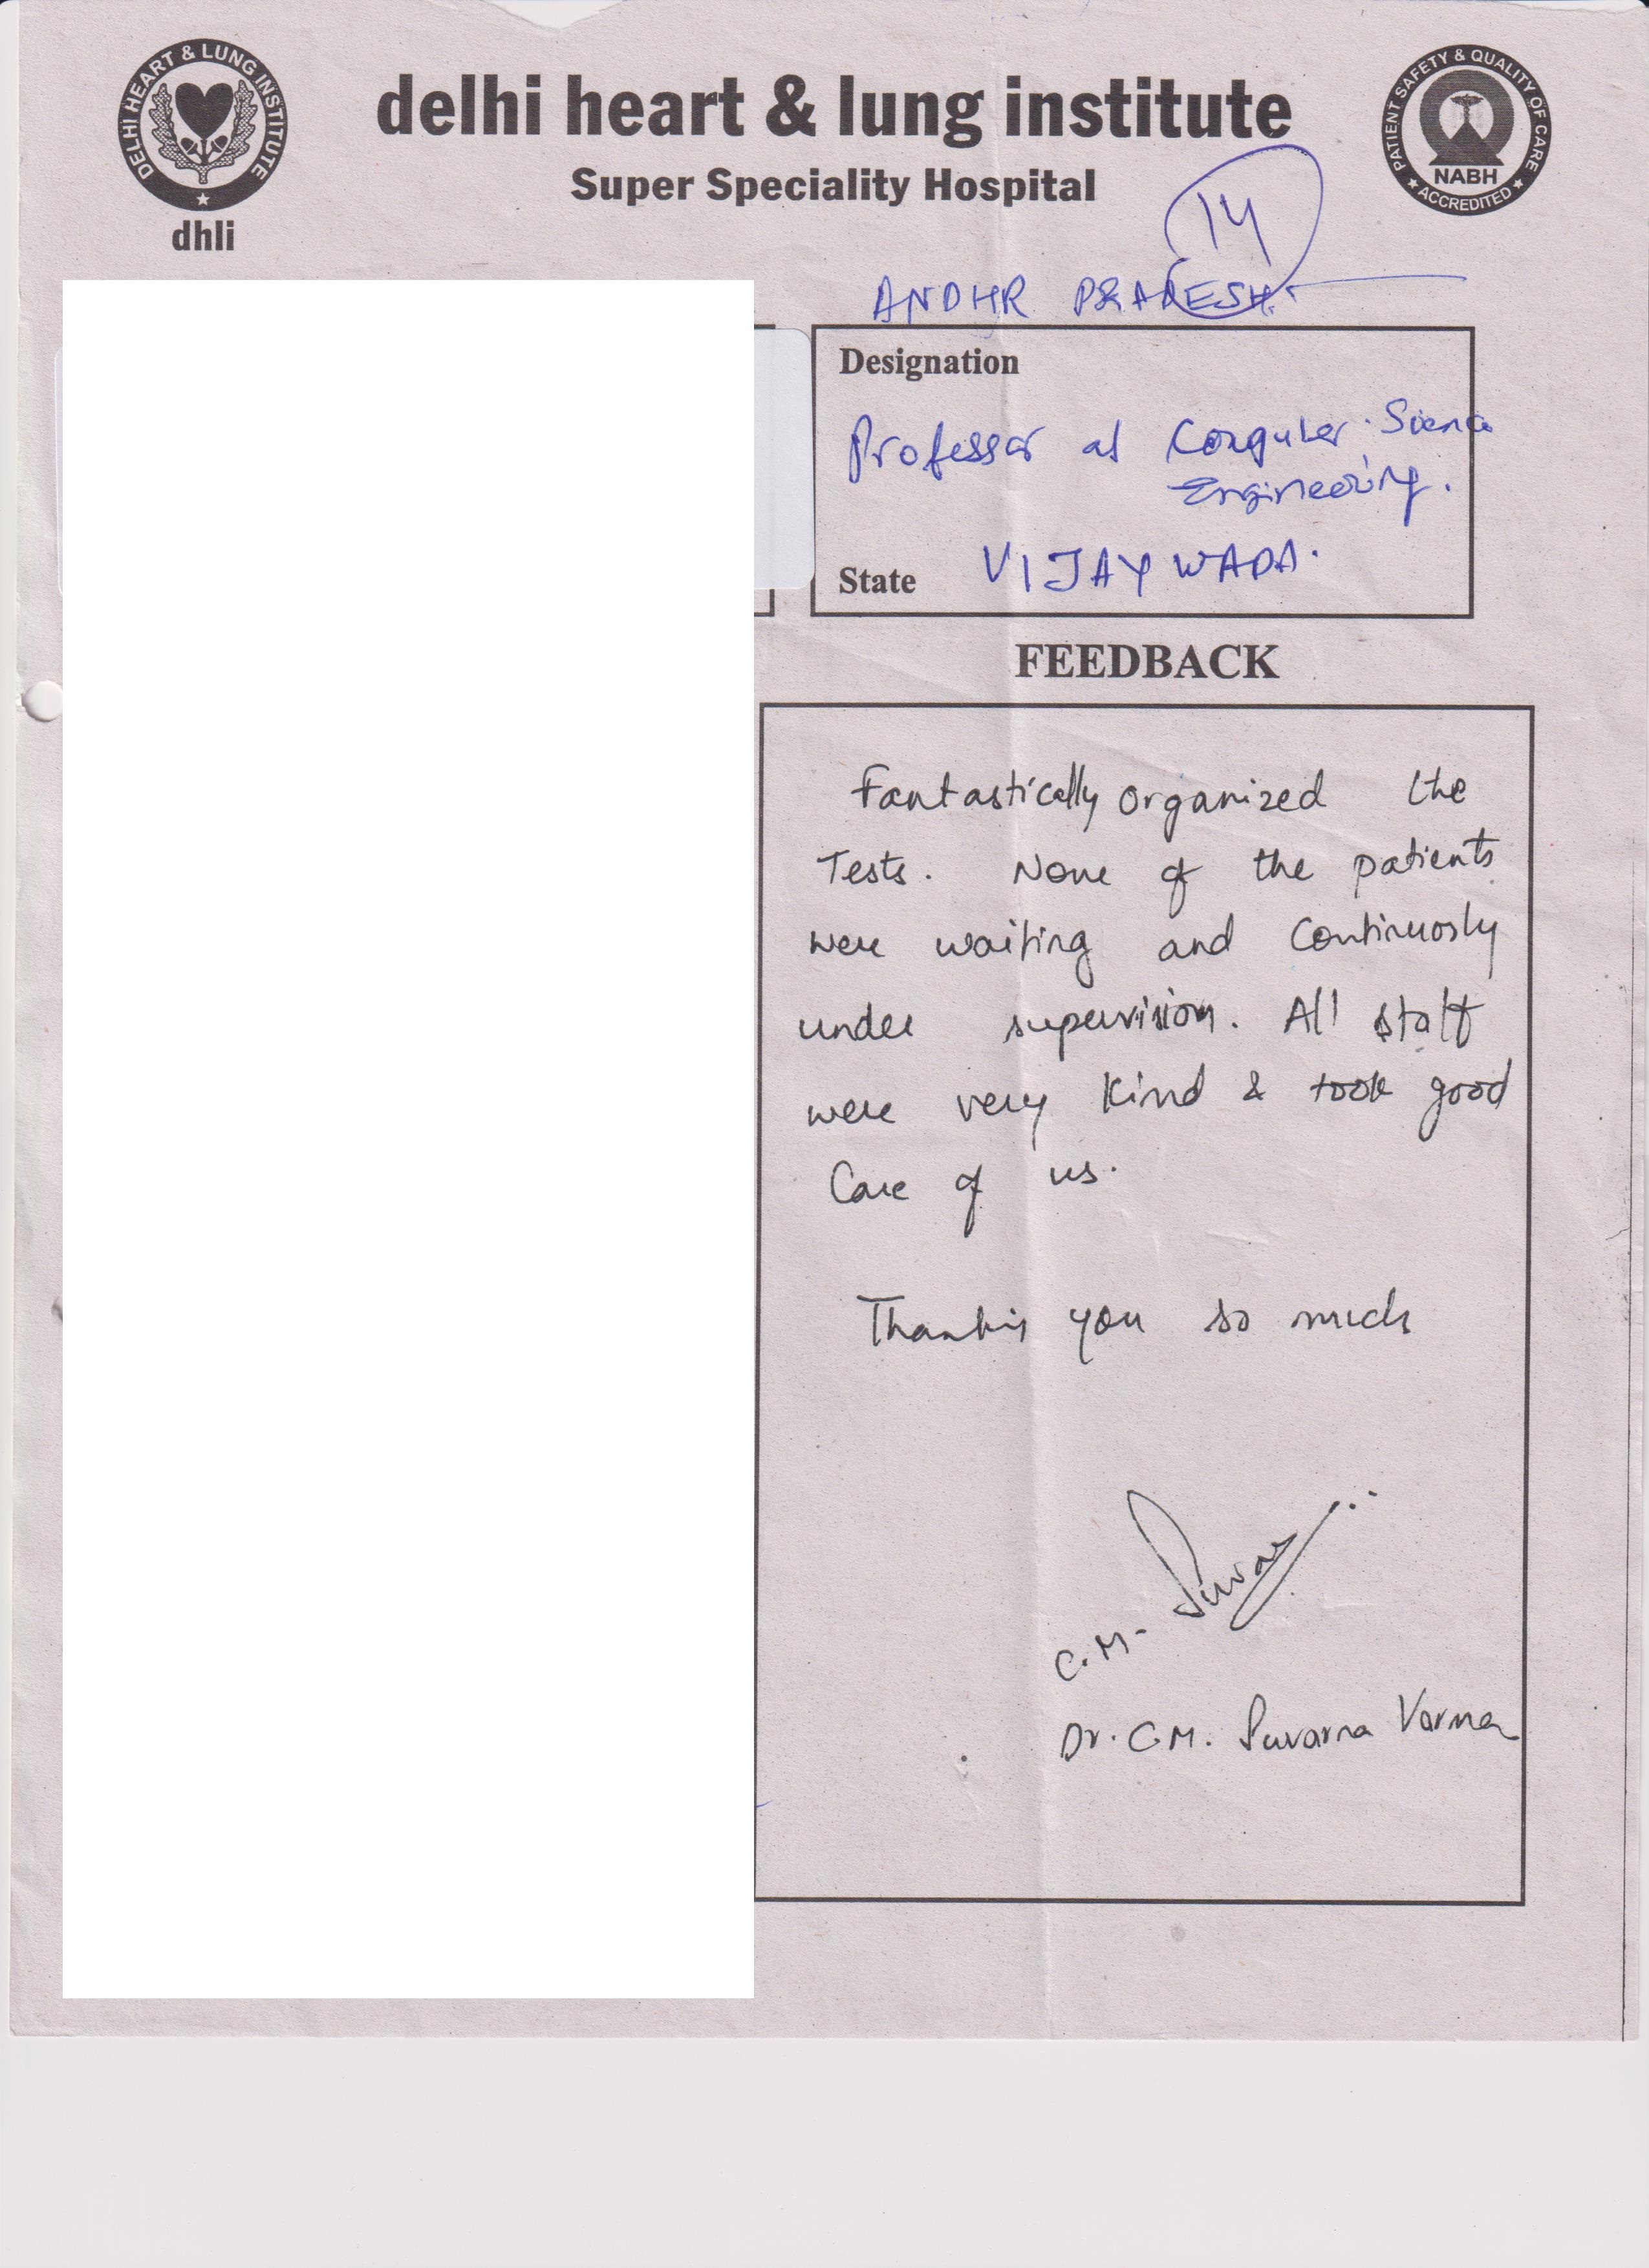 DELHI HEART & LUNG INSTITUTE
dhli
delhi heart & lung institute
Super Speciality Hospital
PATIENT SAFETY & QUALITY OF CARE
NABH
ACCREDITED
14
ANDHR PRADESH
Designation
Professor at Computer Science
Engineering.
State VIJAYWADA.
FEEDBACK
Fantastically organized the
Tests. None of the patients
were waiting and continuosly
under supervision. All staff
were very kind & took good
Care of us.
Thanking you so much
C.M. Suvarna
Dr. C.M. Suvarna Varma